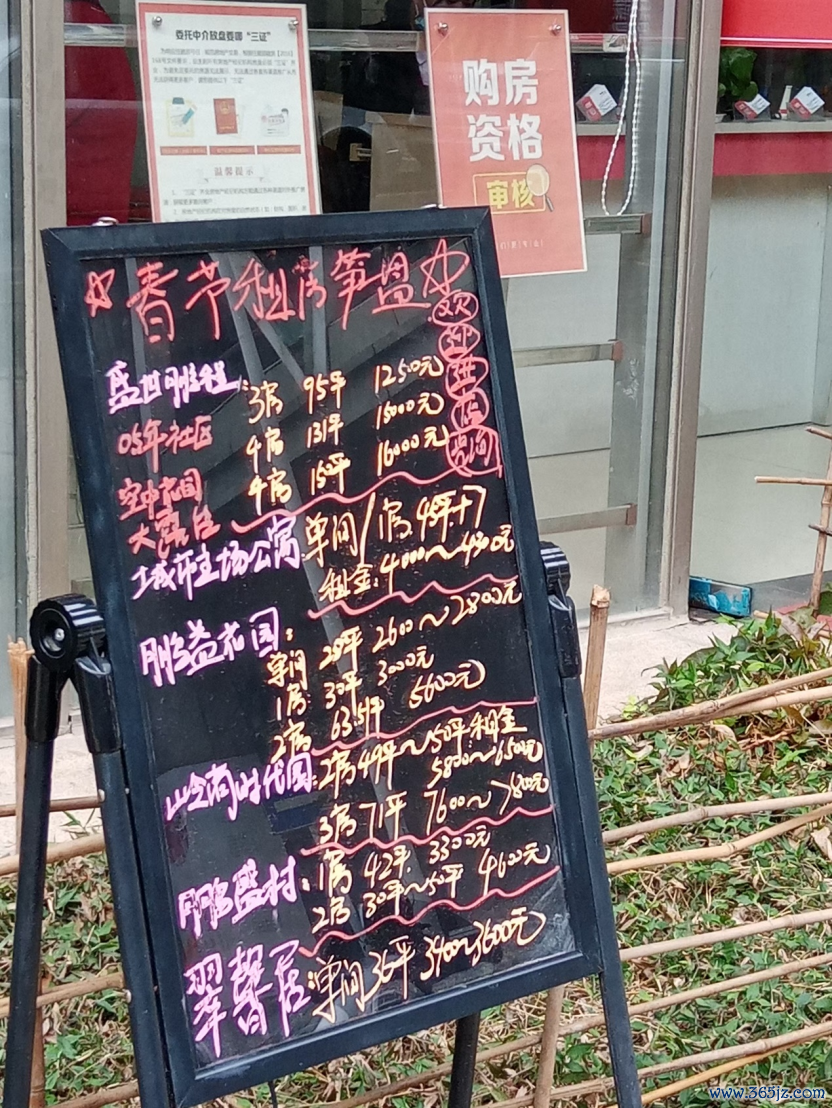 委托中介放盘要哪“三证”
温馨提示
购房
资格
审核
春节租房笋盘
欢迎进店咨询
盛世鹏程：3房 95坪 12500元
05年社区 4房 131坪 15000元
空中花园 4房 150坪 16000元
大露台
城市主场公寓：单间/1房 45坪+7
租金：4000～4300元
鹏益花园：
单间 20坪 2600～2800元
1房 30坪 3000元
2房 63.5坪 5600元
岭尚时代园：2房 49坪～50坪 租金
5800～6500元
3房 71坪 7600～7800元
鹏盛村：1房 42坪 3300元
2房 30坪～50坪 4600元
翠馨居：单间 36坪 3400～3600元
www.365jz.com